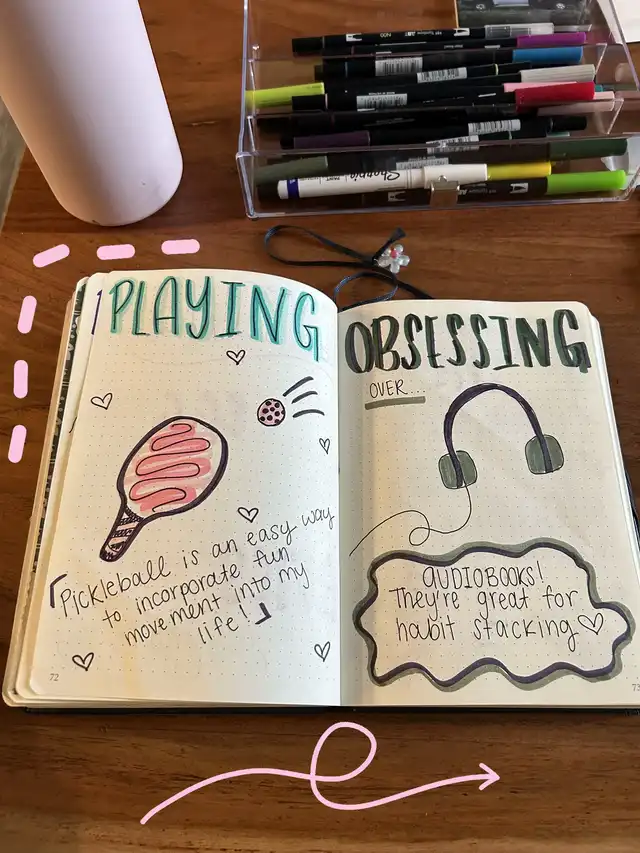 PLAYING
Pickleball is an easy way
to incorporate fun
movement into my
life!
72
OBSESSING
OVER...
AUDIOBOOKS!
They're great for
habit stacking
73
Sharpie
N00